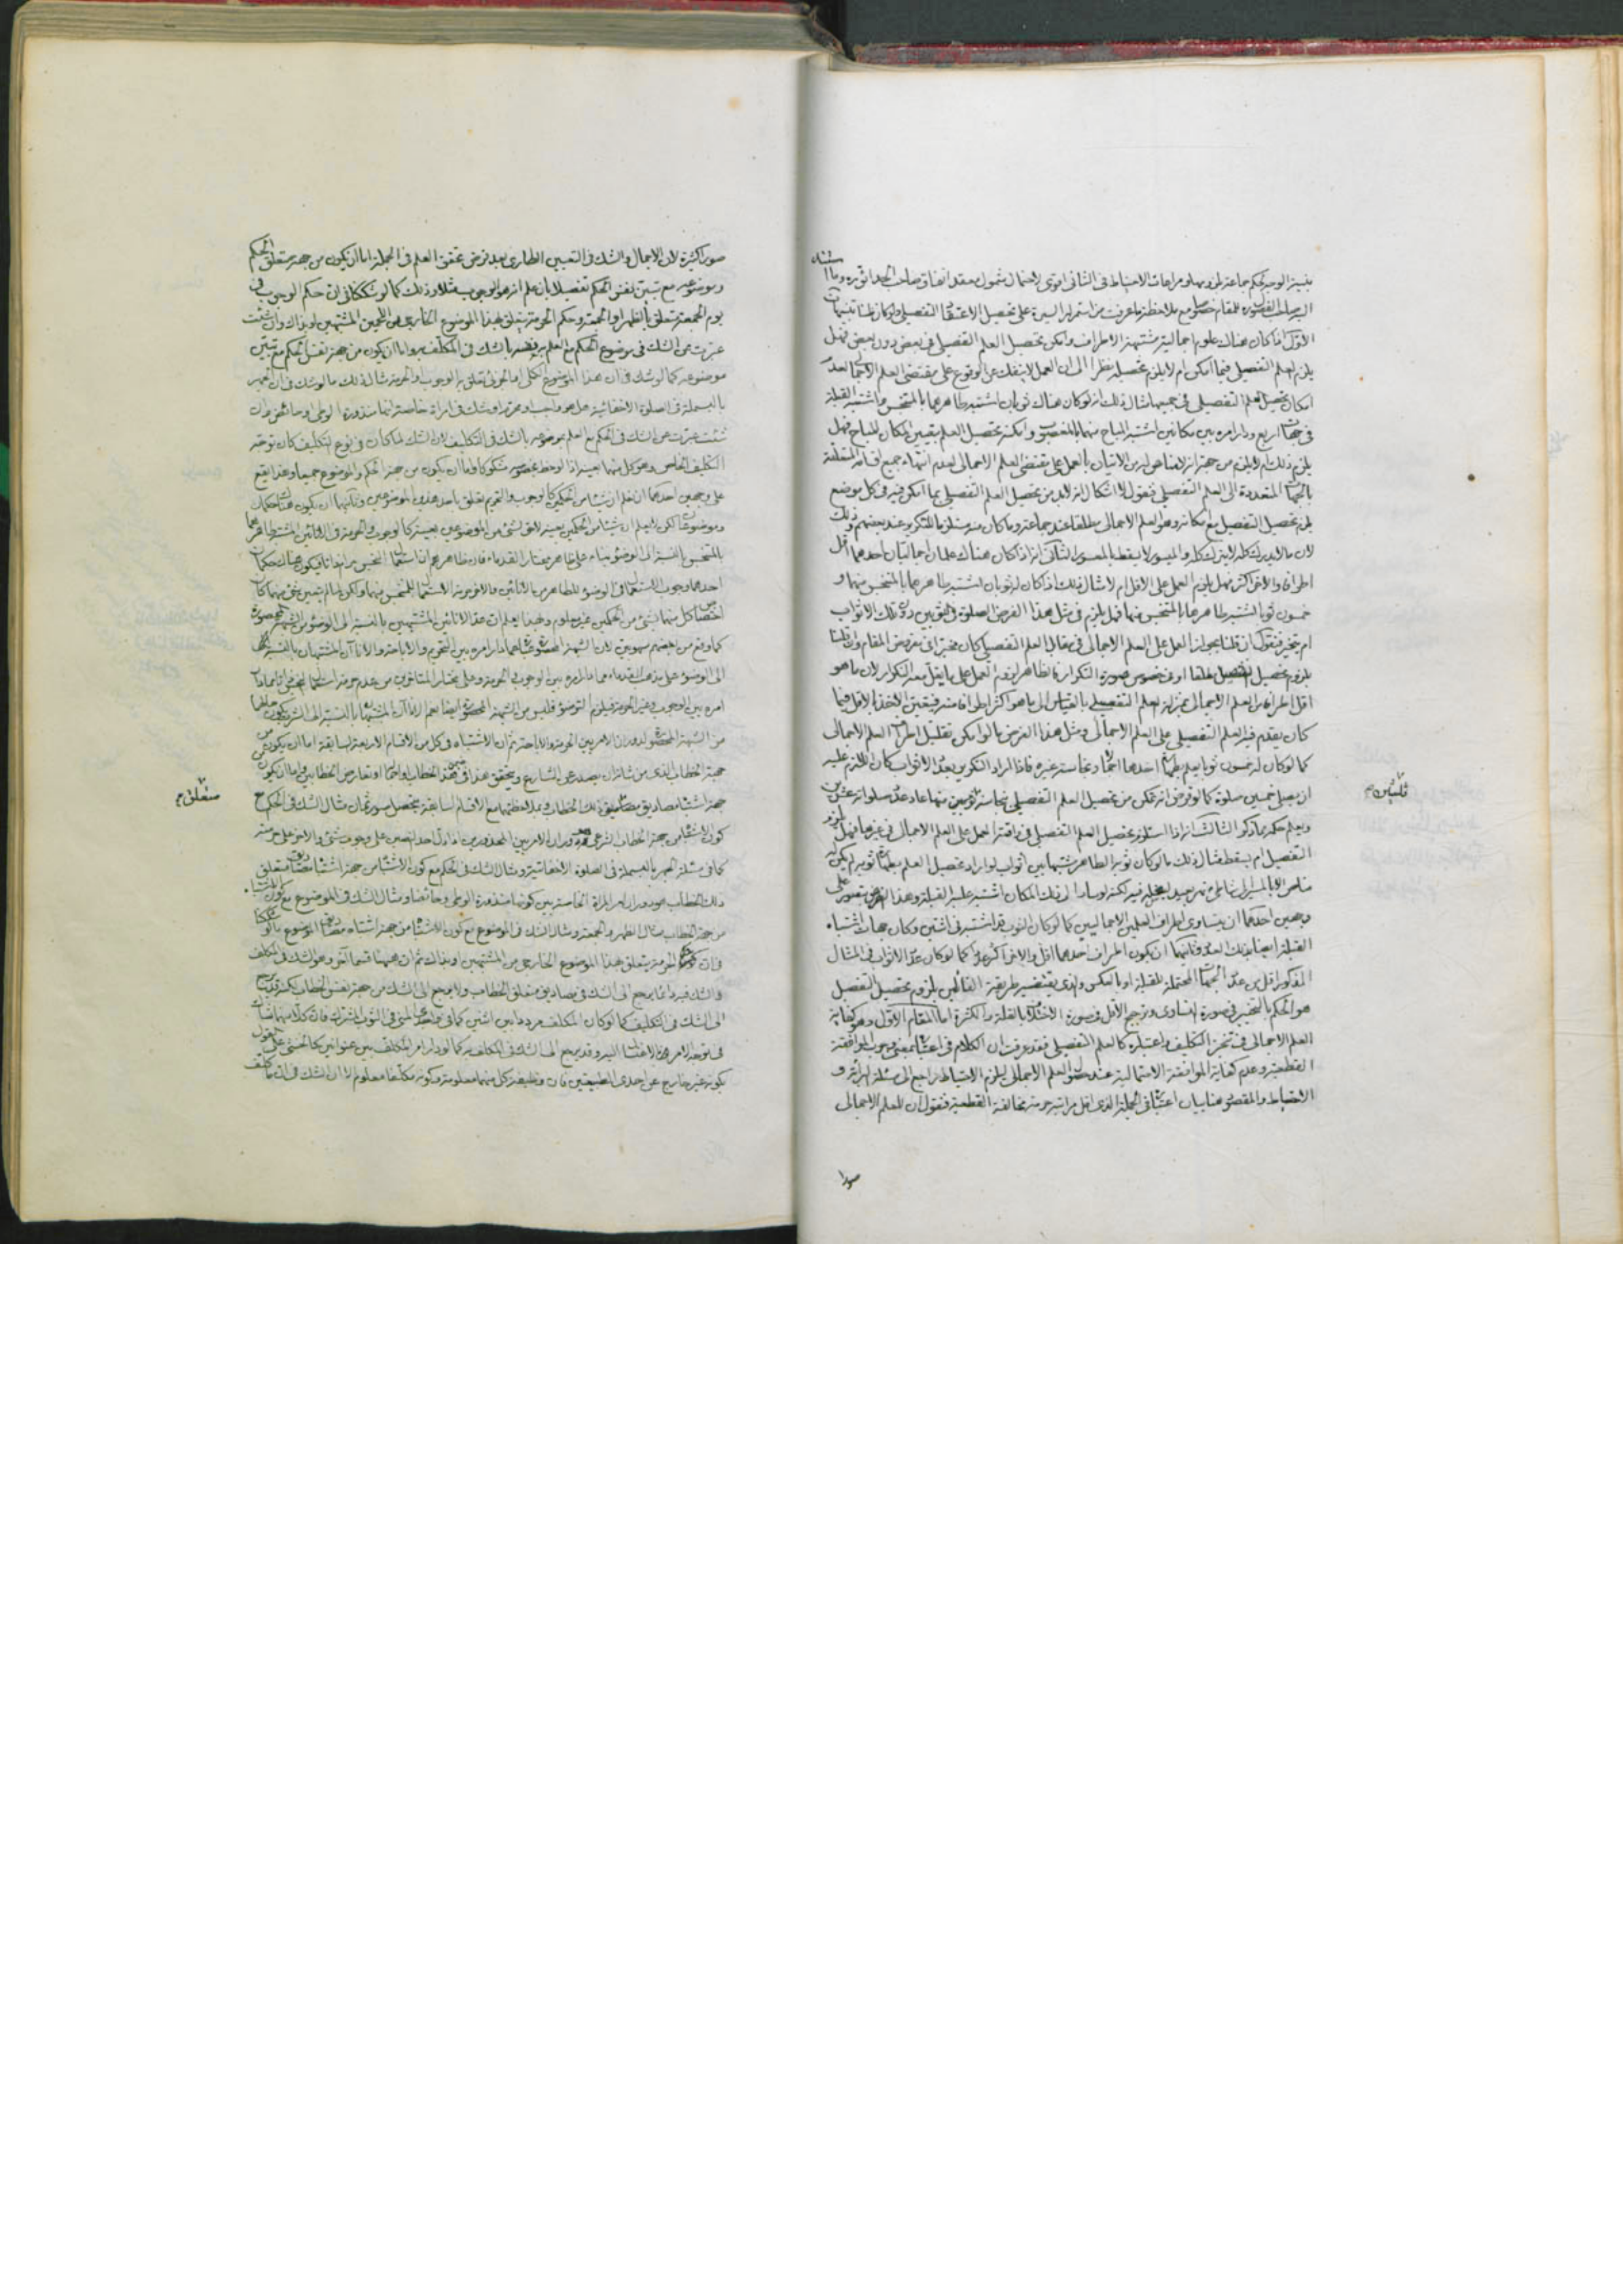 بنية الوجه لحكم جماعة بلزومه ومراعات الاحتياط في الثاني اقوى لاحتمال شمول معقد اتفاق صاحب الحدائق ره وما
الاول اذا كان هناك علوم اجمالية مشتبهة الاطراف وامكن تحصيل العلم التفصيلي في بعض دون بعض فهل
يلزم العلم التفصيلي فيما امكن ام لا يلزم تحصيله نظرا الى ان العمل لا ينفك عن الوقوع على مقتضى العلم الاجمالي لعدم
امكان تحصيل العلم التفصيلي في جميعها مثال ذلك انه لو كان هناك ثوبان اشتبه طاهرهما بالمتنجس واشتبه القبلة
في جهات اربع ودار امره بين مكانين اشتبه المباح منهما بالمغصوب وامكنه تحصيل العلم بتعيين المكان المباح فهل
يلزم ذلك ام لا يلزم من جهة انه لا مناص له من الاتيان بالعمل على مقتضى العلم الاجمالي لعدم انتهاء جميع
بالجهات المتعددة الى العلم التفصيلي فنقول لا اشكال انه لا بد من تحصيل العلم التفصيلي بما امكن فيه في كل موضع
يلزم تحصيل التفصيل مع امكانه وهو العلم الاجمالي مطلقا عند جماعة وما كان منه مستلزما للتكرير عند بعضهم وذلك
لان ما لا يدرك كله لا يترك كله والميسور لا يسقط بالمعسور الثاني انه اذا كان هناك علمان اجماليان احدهما اقل
اطرافا والاخر اكثر فهل يلزم العمل على الاقل ام لا مثال ذلك اذا كان له ثوبان اشتبه طاهرهما بالمتنجس منهما و
خمسون ثوبا اشتبه طاهرها بالمتنجس منها فهل يلزم في مثل هذا الفرض الصلوة في الثوبين دون تلك الاثواب
ام يتخير فنقول ان قلنا بجواز العمل على العلم الاجمالي في مقابل العلم التفصيلي كان مخيرا في مفروض المقام وان قلنا
بلزوم تحصيل التفصيل مطلقا او في خصوص صورة التكرار فالظاهر لزوم العمل على ما يقل معه التكرار لان ما هو
اقل اطرافا من العلم الاجمالي بمنزلة العلم التفصيلي بالقياس الى ما هو اكثر اطرافا منه فيتعين الاخذ بالاقل فيما
كان يقدم فيه العلم التفصيلي على العلم الاجمالي ومثل هذا الفرض ما لو امكن تقليل اطراف العلم الاجمالي
كما لو كان له خمسون ثوبا يعلم بطهارة احدها اجمالا ونجاسة غيره فاذا اراد التكرير بعدد الاثواب كان اللازم عليه
ان يصل خمسين صلوة كما لو فرض انه تمكن من تحصيل العلم التفصيلي بنجاسة ثوبين منها عاد عدد صلواته
ويعلم حكمه بما ذكر الثالث انه اذا استلزم تحصيل العلم التفصيلي في واقعة العمل على العلم الاجمالي في غيرها فهل يلزم
التفصيل ام يسقط مثال ذلك ما لو كان ثوبه الطاهر مشتبها بين اثواب لو اراد تحصيل العلم بطهارة ثوبه لم يكن له
مناص الا بالمسير الى شاطئ نهر بعيد ليغسله فيه لكنه لو سار الى ذلك المكان اشتبه عليه القبلة وهذا الفرض يتصور على
وجهين احدهما ان يتساوى اطراف العلمين الاجماليين كما لو كان الثوب قد اشتبه في اثنين وكان جهات اشتباه
القبلة ايضا بذلك العدد وثانيهما ان يكون اطراف احدهما اقل والاخر اكثر عددا كما لو كان عدد الاثواب في المثال
المذكور اقل من عدد الجهات المحتملة للقبلة او بالعكس والذي يقتضيه طريقة القائلين بلزوم تحصيل التفصيل
هو الحكم بالتخيير في صورة التساوي وترجيح الاقل في صورة الاختلاف بالقلة والكثرة اما المقام الاول وهو كفاية
العلم الاجمالي في تنجز التكليف واعتباره كالعلم التفصيلي فقد عرفت ان الكلام في اعتباره بمعنى وجوب الموافقة
القطعية وعدم كفاية الموافقة الاحتمالية عند حصول العلم الاجمالي يلزم الاحتياط راجع الى مسئلة البرائة و
الاحتياط والمقصود هنا بيان اعتباره في الجملة الذي اقل مراتبه حرمة مخالفة القطعية فنقول ان للعلم الاجمالي
صورا
صورا كثيرة لان الاجمال والشك في التعيين الطاري بعد فرض تحقق العلم في الجملة اما ان يكون من جهة متعلق الحكم
وموضوعه مع تبين نفس الحكم تفصيلا بان يعلم انه هو الوجوب مثلا وذلك كما لو شككنا في ان حكم الوجوب في
يوم الجمعة يتعلق بالظهر او الجمعة وحكم الحرمة يتعلق بهذا الموضوع الخارجي من اللحمين المشتبهين او بذاك وان شئت
عبرت عن الشك في موضوع الحكم مع العلم به بالشك في المكلف به واما ان يكون من جهة نفس الحكم مع تبين
موضوعه كما لو شك في ان هذا الموضوع الكلي او الجزئي تعلق به الوجوب او الحرمة مثال ذلك ما لو شك في ان الجهر
بالبسملة في الصلوة الاخفاتية هل هو واجب او محرم او شك في امراة خاصة انها منذورة الوطي او حائض وان
شئت عبرت عن الشك في الحكم مع العلم بموضوعه بالشك في التكليف لان الشك لما كان في نوع التكليف كان توجه
التكليف الخاص وهو كل منهما بعينه اذا لوحظ بخصوصه مشكوكا واما ان يكون من جهة الحكم والموضوع جميعا وهذا يقع
على وجهين احدهما ان نعلم ان شيئا من الحكمين كالوجوب والتحريم تعلق باحد هذين الموضوعين وثانيهما ان يكون هناك حكمان
وموضوعان لكن لا يعلم ان شيئا من الحكمين بعينه لاي شئ من الموضوعين بعينه كما لوجوب والحرمة في الانائين المشتبه طاهرهما
بالمتنجس بالنسبة الى الوضوء بناء على ظاهر مختار القدماء فان ظاهرهم ان استعمال النجس حرام ذاتا فيكون هناك حكمان
احدهما وجوب الاستعمال في الوضوء للطاهر من الانائين والاخر حرمة الاستعمال للمتنجس منهما ولكن لما لم يتعين شئ منهما كان
اختصاص كل منهما بشئ من الحكمين غير معلوم وبهذا يعلم ان عد الانائين المشتبهين بالنسبة الى الوضوء من الشبهة المحصورة
كما وقع من بعضهم سهو بين لان الشبهة المحصورة عبارة عما دار امره بين التحريم والاباحة والاناآن المشتبهان بالنسبة
الى الوضوء على مذهب القدماء مما دار امره بين الوجوب والحرمة وعلى مختار المتاخرين من عدم حرمة استعمال النجس ذاتا مما دار
امره بين الوجوب وغير الحرمة فيلزم التوضؤ فليس من الشبهة المحصورة ايضا نعم الاناآن المشتبهان بالنسبة الى الشرب يكون حالهما
من الشبهة المحصورة لدوران الامر بين الحرمة والاباحة ثم ان الاشتباه في كل من الاقسام الاربعة السابقة اما ان يكون من
جهة الخطاب الذي من شانه ان يصدر عن الشارع ويتحقق هذا في فقد الخطاب او اجماله او تعارض الخطابين واما ان يكون من
جهة اشتباه مصاديق متعلق ذلك الخطاب فبملاحظتهما مع الاقسام السابقة يتحصل صور ثمان مثال الشك في الحكم مع
متعلق م
كون الاشتباه من جهة الخطاب الشرعي هو دوران الامر بين المحذورين اذا دل احد النصين على وجوب شئ والاخر على حرمته
كما في مسئلة الجهر بالبسملة في الصلوة الاخفاتية ومثال الشك في الحكم مع كون الاشتباه من جهة اشتباه مصاديق متعلق
ذلك الخطاب هو دوران امر المراة الخاصة بين كونها منذورة الوطي وحائضا ومثال الشك في الموضوع مع كون الاشتباه
من جهة الخطاب مثال الظهر والجمعة ومثال الشك في الموضوع مع كون الاشتباه من جهة اشتباه مصاديق الموضوع ما لو شككنا
في ان حكم الحرمة يتعلق بهذا الموضوع الخارجي من المشتبهين او بذاك ثم ان هيهنا قسما آخر وهو الشك في المكلف
والشك فيه دائما يرجع الى الشك في مصاديق متعلق الخطاب ولا يرجع الى الشك من جهة نفس الخطاب لكنه قد يرجع
الى الشك في التكليف كما لو كان المكلف مرددا بين اثنين كما في واجدي المني في الثوب المشترك فان كلا منهما شاك
في توجه الامر بالاغتسال اليه وقد يرجع الى الشك في المكلف به كما لو دار امر المكلف بين عنوانين كالخنثى على القول
بكونه غير خارج عن احدى الطبيعتين فان وظيفة كل منهما معلومة وكونه مكلفا معلوم الا ان الشك في ان ما كلف